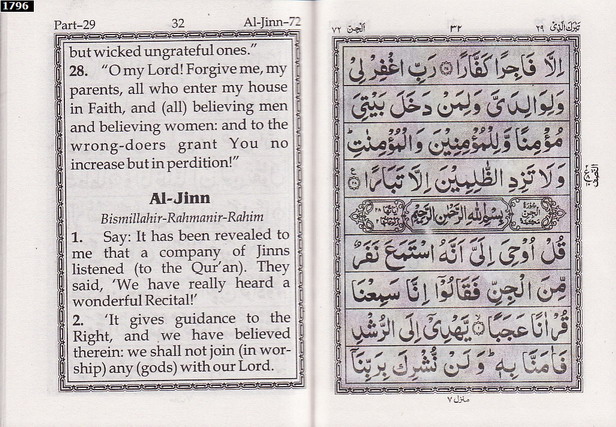 1796
Part–29 32 Al-Jinn–72
but wicked ungrateful ones.”
28. “O my Lord! Forgive me, my
parents, all who enter my house
in Faith, and (all) believing men
and believing women: and to the
wrong-doers grant You no
increase but in perdition!”
Al-Jinn
Bismillahir-Rahmanir-Rahim
1. Say: It has been revealed to
me that a company of Jinns
listened (to the Qur’an). They
said, ‘We have really heard a
wonderful Recital!’
2. ‘It gives guidance to the
Right, and we have believed
therein: we shall not join (in wor-
ship) any (gods) with our Lord.
تبٰرك الذی ۲۹ ۳۲ الجن ۷۲
اِلَّا فَاجِرًا كَفَّارًا ﴿۲۷﴾ رَبِّ اغْفِرْ لِیْ
وَلِوَالِدَیَّ وَلِمَنْ دَخَلَ بَیْتِیَ
مُؤْمِنًا وَّلِلْمُؤْمِنِیْنَ وَالْمُؤْمِنٰتِ ؕ
وَلَا تَزِدِ الظّٰلِمِیْنَ اِلَّا تَبَارًا ﴿۲۸﴾
بِسْمِ اللّٰهِ الرَّحْمٰنِ الرَّحِیْمِ
قُلْ اُوْحِیَ اِلَیَّ اَنَّهُ اسْتَمَعَ نَفَرٌ
مِّنَ الْجِنِّ فَقَالُوْۤا اِنَّا سَمِعْنَا
قُرْاٰنًا عَجَبًا ﴿۱﴾ یَّهْدِیْۤ اِلَی الرُّشْدِ
فَاٰمَنَّا بِهٖ ؕ وَلَنْ نُّشْرِكَ بِرَبِّنَاۤ
منزل ۷